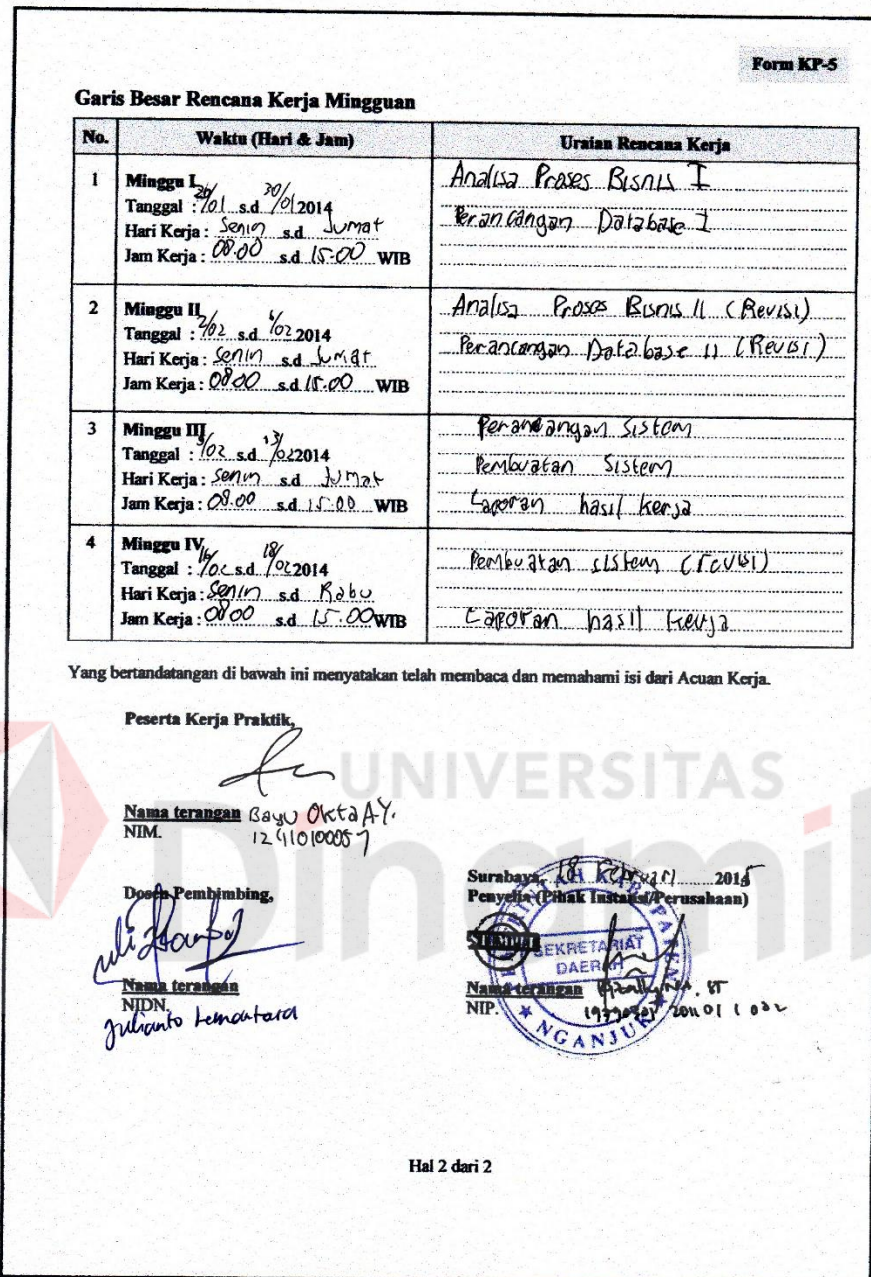 Form KP-5
Garis Besar Rencana Kerja Mingguan
No. Waktu (Hari & Jam) Uraian Rencana Kerja
1 Minggu I
Tanggal : 26/01 s.d 30/01 2014
Hari Kerja : Senin s.d Jumat
Jam Kerja : 08.00 s.d 15.00 WIB
Analisa Proses Bisnis I
Perancangan Database I
2 Minggu II
Tanggal : 2/02 s.d 6/02 2014
Hari Kerja : Senin s.d Jumat
Jam Kerja : 08.00 s.d 15.00 WIB
Analisa Proses Bisnis II (Revisi)
Perancangan Database II (Revisi)
3 Minggu III
Tanggal : 9/02 s.d 13/02 2014
Hari Kerja : Senin s.d Jumat
Jam Kerja : 08.00 s.d 15.00 WIB
Perancangan Sistem
Pembuatan Sistem
Laporan hasil kerja
4 Minggu IV
Tanggal : 16/02 s.d 18/02 2014
Hari Kerja : Senin s.d Rabu
Jam Kerja : 08.00 s.d 15.00 WIB
Pembuatan sistem (revisi)
Laporan hasil kerja
Yang bertandatangan di bawah ini menyatakan telah membaca dan memahami isi dari Acuan Kerja.
Peserta Kerja Praktik,
UNIVERSITAS
Dinamik
Nama terangan Bayu Okta A.Y.
NIM. 12410100057
Surabaya, 18 Februari 2015
Dosen Pembimbing,
Penyelia (Pihak Instansi/Perusahaan)
PEMERINTAH KABUPATEN
SEKRETARIAT
DAERAH
NGANJUK
Nama terangan
NIDN.
Julianto Lemantara
Nama terangan ST
NIP.
Hal 2 dari 2